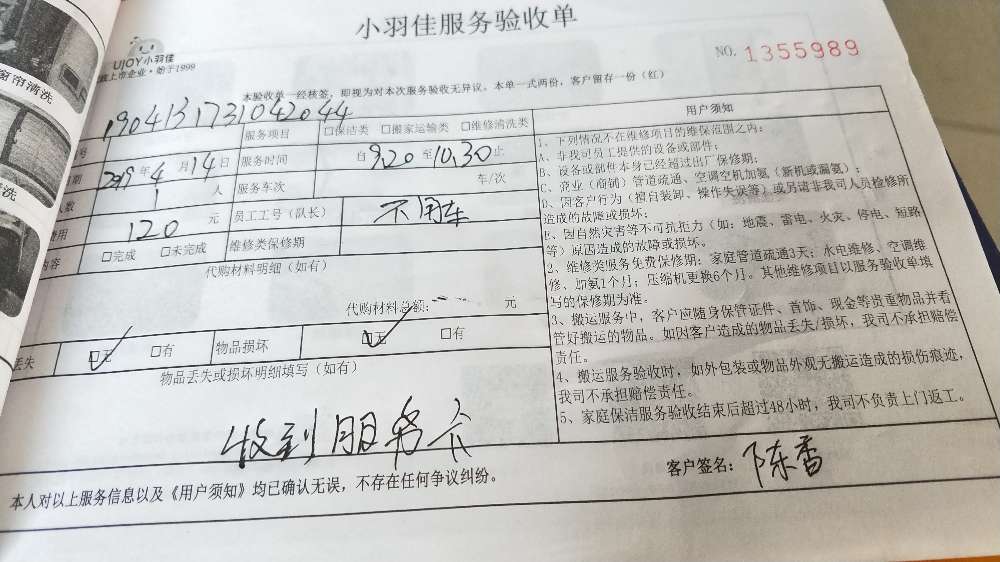 小羽佳服务验收单
UJOY小羽佳
上市企业·始于1999
NO. 1355989
本验收单一经核签，即视为对本次服务验收无异议。本单一式两份，客户留存一份（红）
窗帘清洗
清洗
号 1904131731042044 服务项目 □保洁类 □搬家运输类 □维修清洗类
日期 2019年4月14日 服务时间 自9.20至10.30止
人数 1 人 服务车次 车/次
费用 120 元 员工工号（队长） 不用车
内容 □完成 □未完成 维修类保修期
代购材料明细（如有）
代购材料总额: 元
丢失 □无 □有 物品损坏 □无 □有
物品丢失或损坏明细填写（如有）
收到服务卡
用户须知
1、下列情况不在维修项目的维保范围之内：
A、非我司员工提供的设备或部件；
B、设备或部件本身已经超过出厂保修期；
C、商业（商铺）管道疏通、空调空机加氨（新机或漏氨）；
D、因客户行为（擅自装卸、操作失误等）或另请非我司人员检修所
造成的故障或损坏；
E、因自然灾害等不可抗拒力（如：地震、雷电、火灾、停电、短路
等）原因造成的故障或损坏。
2、维修类服务免费保修期：家庭管道疏通3天；水电维修、空调维
修、加氨1个月；压缩机更换6个月。其他维修项目以服务验收单填
写的保修期为准。
3、搬运服务中，客户应随身保管证件、首饰、现金等贵重物品并看
管好搬运的物品。如因客户造成的物品丢失/损坏，我司不承担赔偿
责任。
4、搬运服务验收时，如外包装或物品外观无搬运造成的损伤痕迹，
我司不承担赔偿责任。
5、家庭保洁服务验收结束后超过48小时，我司不负责上门返工。
本人对以上服务信息以及《用户须知》均已确认无误，不存在任何争议纠纷。
客户签名：陈香